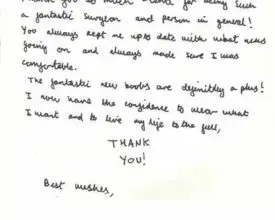 Thank you so much for being such
a fantastic surgeon and person in general!
You always kept me upto date with what was
going on and always made sure I was
comfortable.
The fantastic new boobs are definitely a plus!
I now have the confidence to wear what
I want and to live my life to the full,
THANK
YOU!
Best wishes,